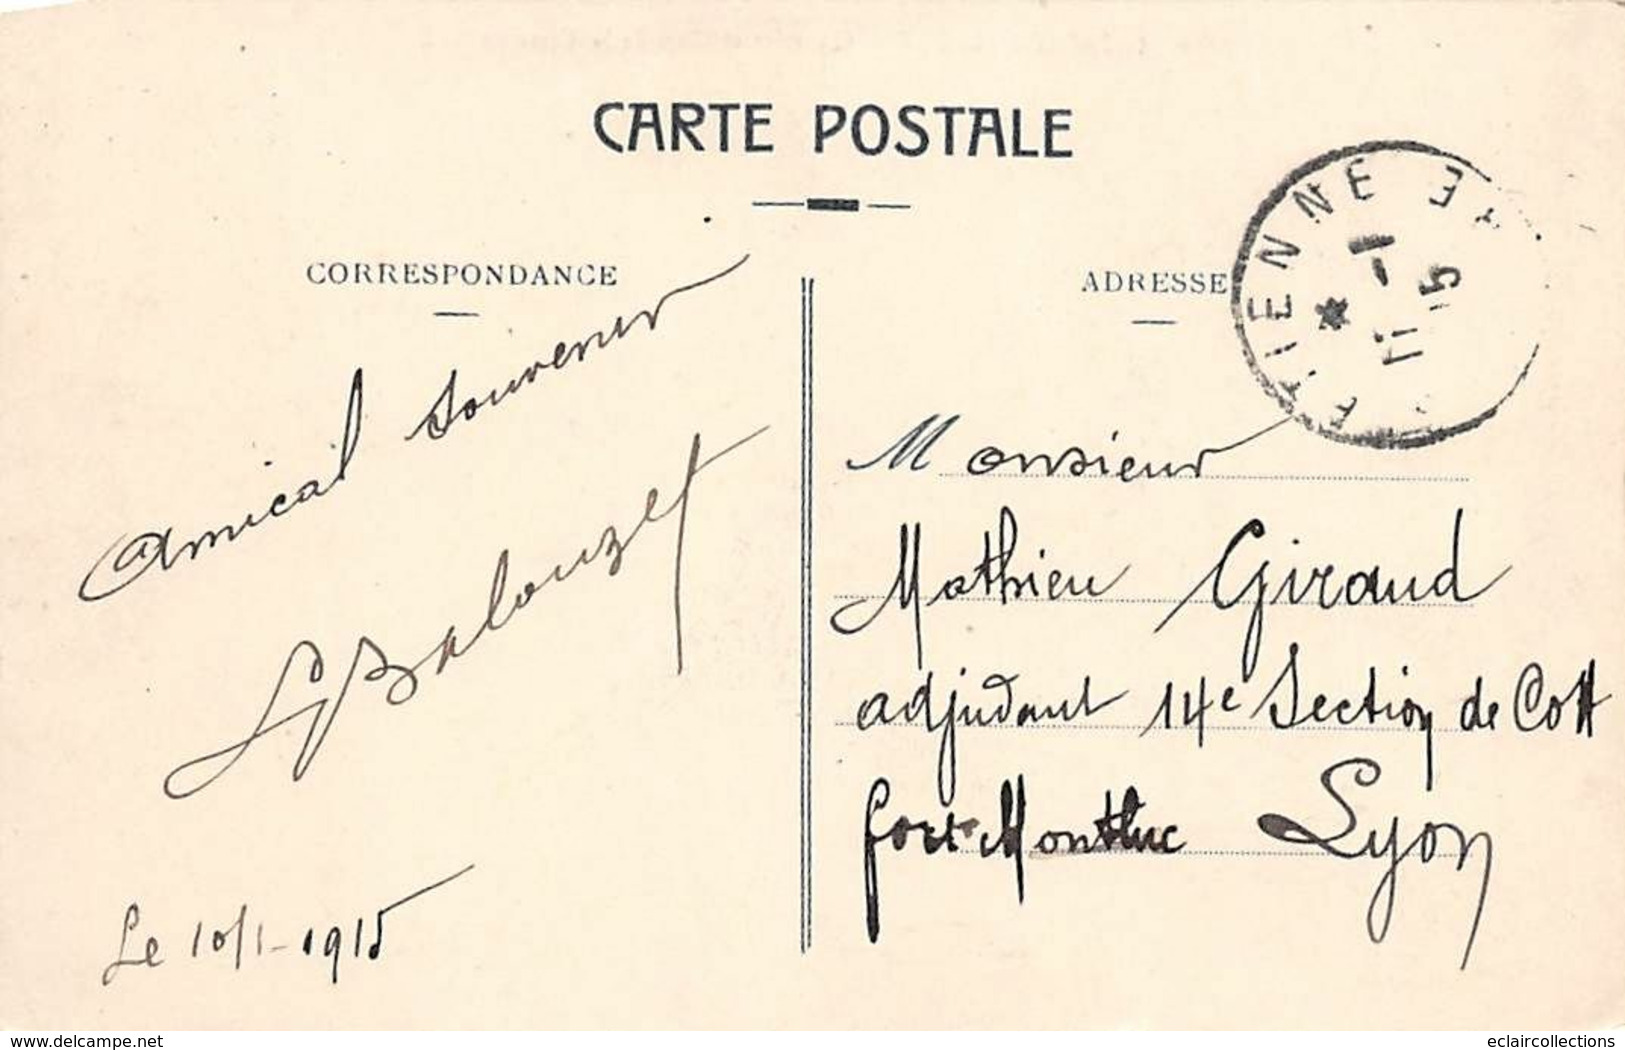 CARTE POSTALE
CORRESPONDANCE
ADRESSE
ETIENNE
11 -1 15
Amical souvenir
Le 10/1-1915
Monsieur
Mathieu Giraud
adjudant 14e Section de COA
fort Montluc Lyon
www.delcampe.net
eclaircollections